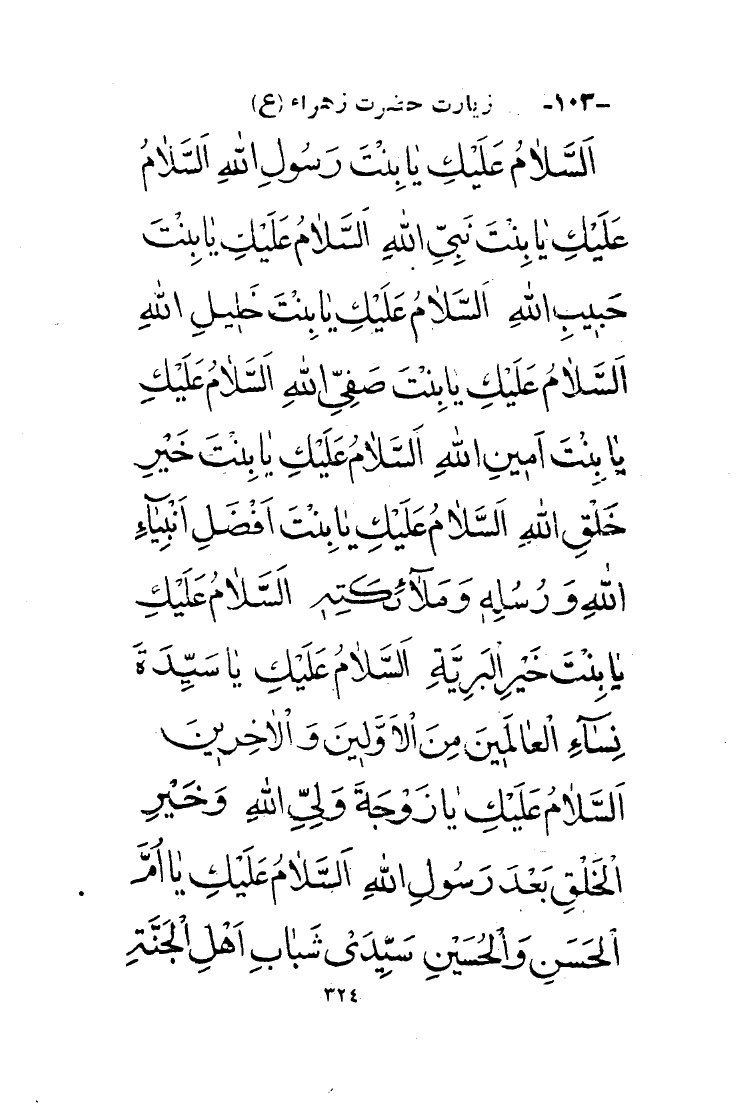 -۱۰۳- زیارت حضرت زهراء (ع)
اَلسَّلامُ عَلَیْكِ یٰا بِنْتَ رَسُولِ اللهِ اَلسَّلامُ
عَلَیْكِ یٰا بِنْتَ نَبِیِّ اللهِ اَلسَّلامُ عَلَیْكِ یٰا بِنْتَ
حَبِیبِ اللهِ اَلسَّلامُ عَلَیْكِ یٰا بِنْتَ خَلِیلِ اللهِ
اَلسَّلامُ عَلَیْكِ یٰا بِنْتَ صَفِیِّ اللهِ اَلسَّلامُ عَلَیْكِ
یٰا بِنْتَ اَمِینِ اللهِ اَلسَّلامُ عَلَیْكِ یٰا بِنْتَ خَیْرِ
خَلْقِ اللهِ اَلسَّلامُ عَلَیْكِ یٰا بِنْتَ اَفْضَلِ اَنْبِیٰآءِ
اللهِ وَ رُسُلِهِ وَ مَلآئِكَتِهِ اَلسَّلامُ عَلَیْكِ
یٰا بِنْتَ خَیْرِ الْبَرِیَّةِ اَلسَّلامُ عَلَیْكِ یٰا سَیِّدَةَ
نِسٰآءِ الْعٰالَمِینَ مِنَ الْاَوَّلِینَ وَ الْاٰخِرِینَ
اَلسَّلامُ عَلَیْكِ یٰا زَوْجَةَ وَلِیِّ اللهِ وَ خَیْرِ
الْخَلْقِ بَعْدَ رَسُولِ اللهِ اَلسَّلامُ عَلَیْكِ یٰا اُمَّ
الْحَسَنِ وَ الْحُسَیْنِ سَیِّدَیْ شَبٰابِ اَهْلِ الْجَنَّةِ
۳۲٤